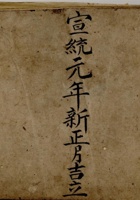 宣統元年新正月吉立